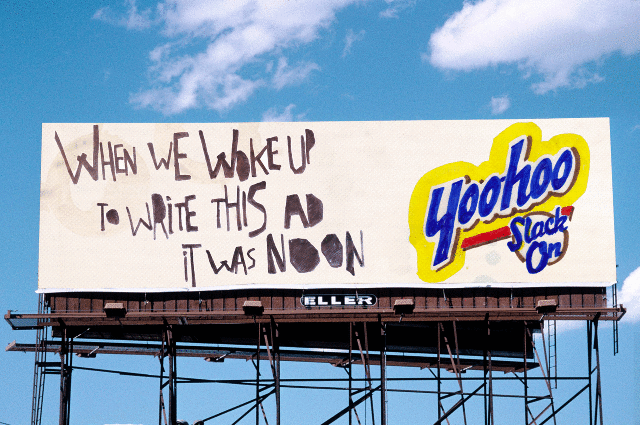 WHEN WE WOKE UP
TO WRITE THIS AD
iT WAS NOON
Yoohoo
Slack
On
ELLER